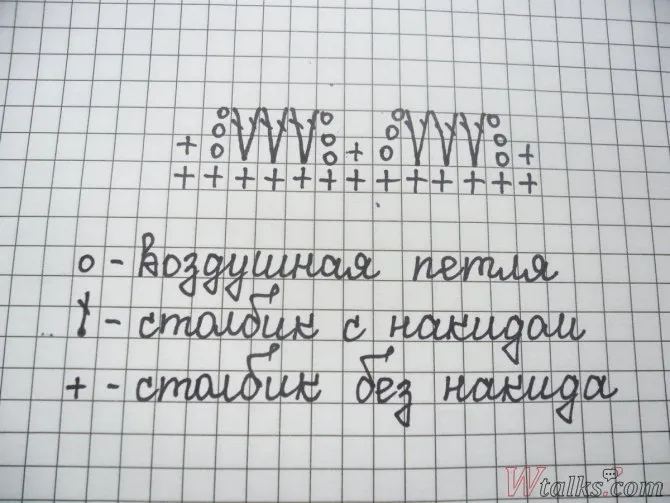 о - воздушная петля
† - столбик с накидом
+ - столбик без накида
Wtalks.com